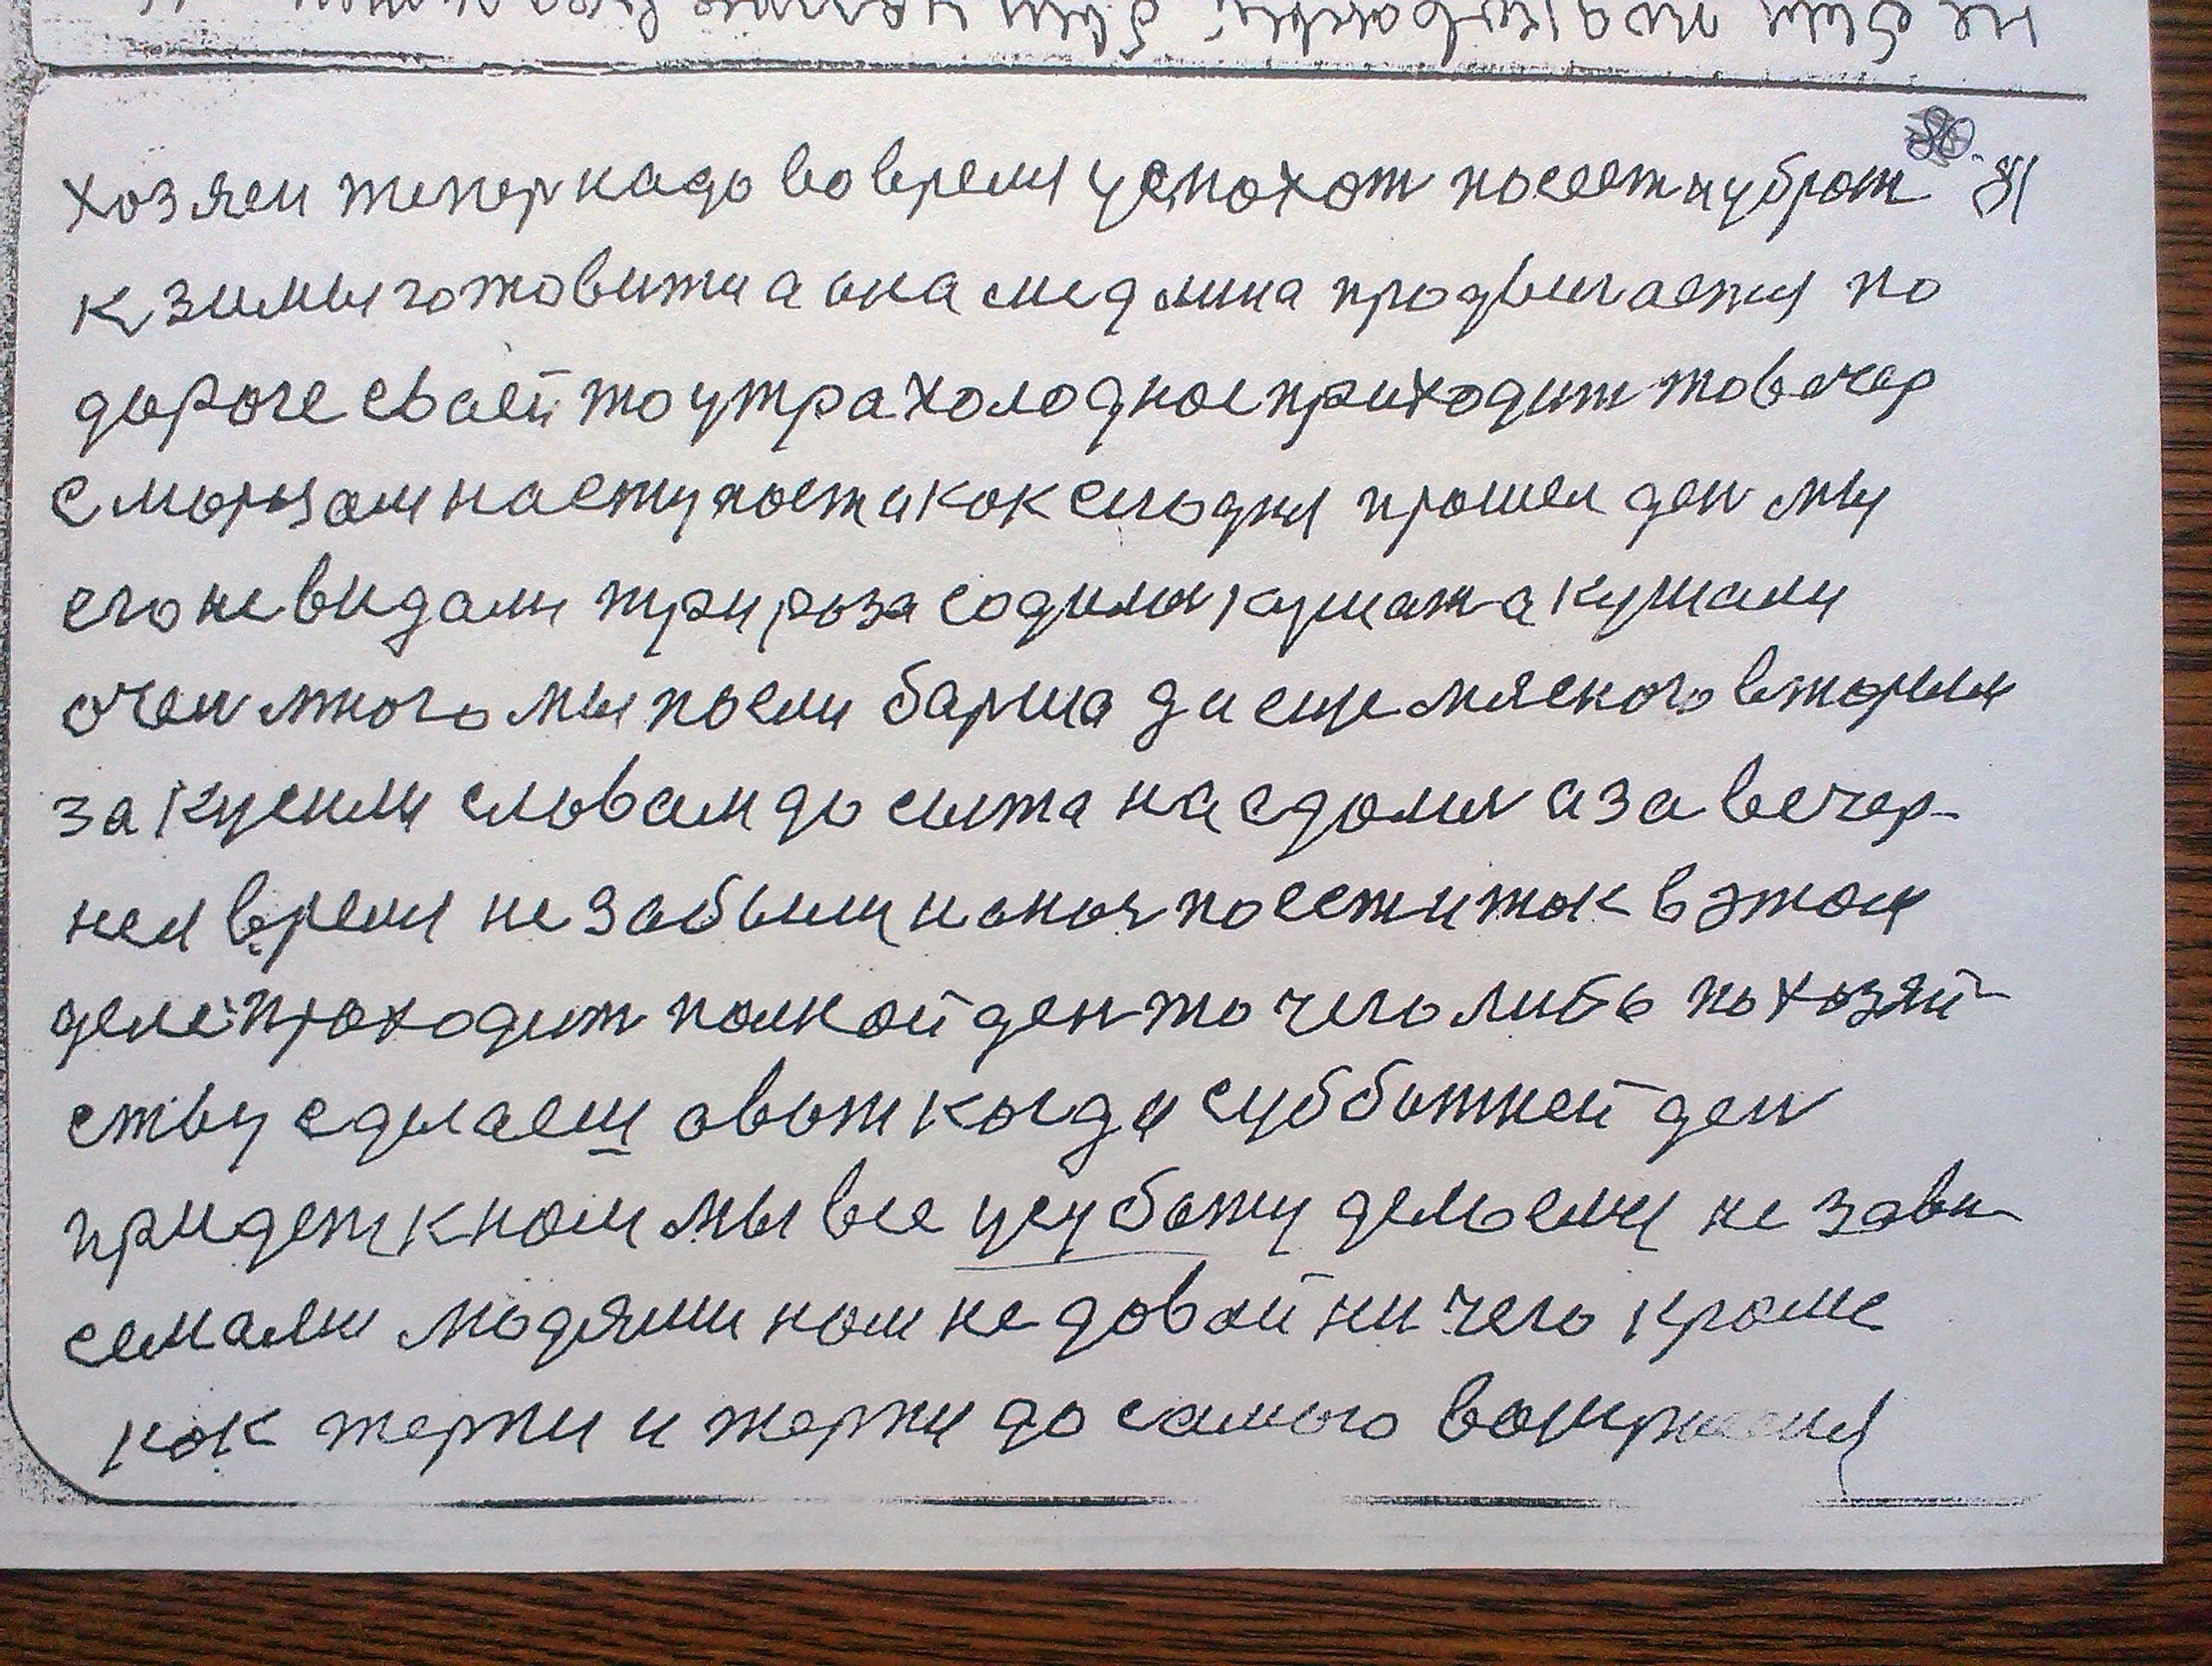 не были
80 81
хозяен тепер надо во время успохот посеет и уброт
к зимы готовится а она медлина продвигается по
дороге сваей то утра холодное приходит то вечер
с морозам наступоет а кок сегодня прошел ден мы
его не видали три роза содились кушат а кушали
очен много мы поели барща да еще мяского вторым
закусили словам до сыта наедались а за вечер-
нея время не забыли и оноя поести ток в этом
деле проходит полной ден то чего либо по хозяй-
ству сделаеш а вот когда субботней ден
придет к ном мы все усуботу дель ему не зави-
семалы людями ном не довай ни чего кроме
кок терпи и терпи до самого